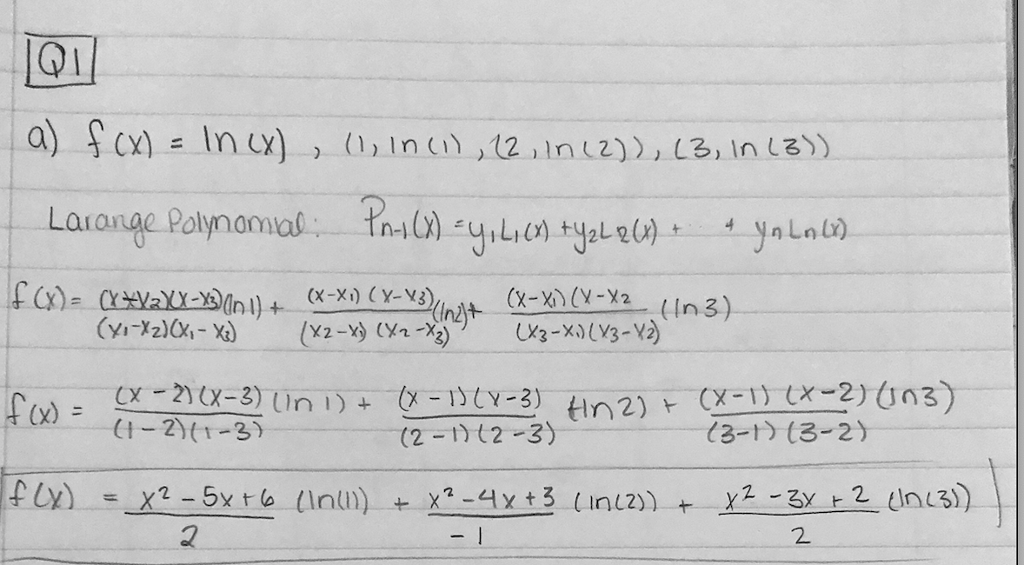 Q1
a) f(x) = ln(x) , (1, ln(1) , (2, ln(2)), (3, ln(3))
Larange Polynomial: Pn-1(x) = y1L1(x) + y2L2(x) + .. + ynLn(x)
f(x) = (x-x2)(x-x3)/(x1-x2)(x1-x3) (ln1) + (x-x1)(x-x3)/(x2-x1)(x2-x3) (ln2) + (x-x1)(x-x2/(x3-x1)(x3-x2) (ln3)
f(x) = (x-2)(x-3)/(1-2)(1-3) (ln 1) + (x-1)(x-3)/(2-1)(2-3) (ln2) + (x-1)(x-2)/(3-1)(3-2) (ln3)
f(x) = x²-5x+6/2 (ln(1)) + x²-4x+3/-1 (ln(2)) + x²-3x+2/2 (ln(3))